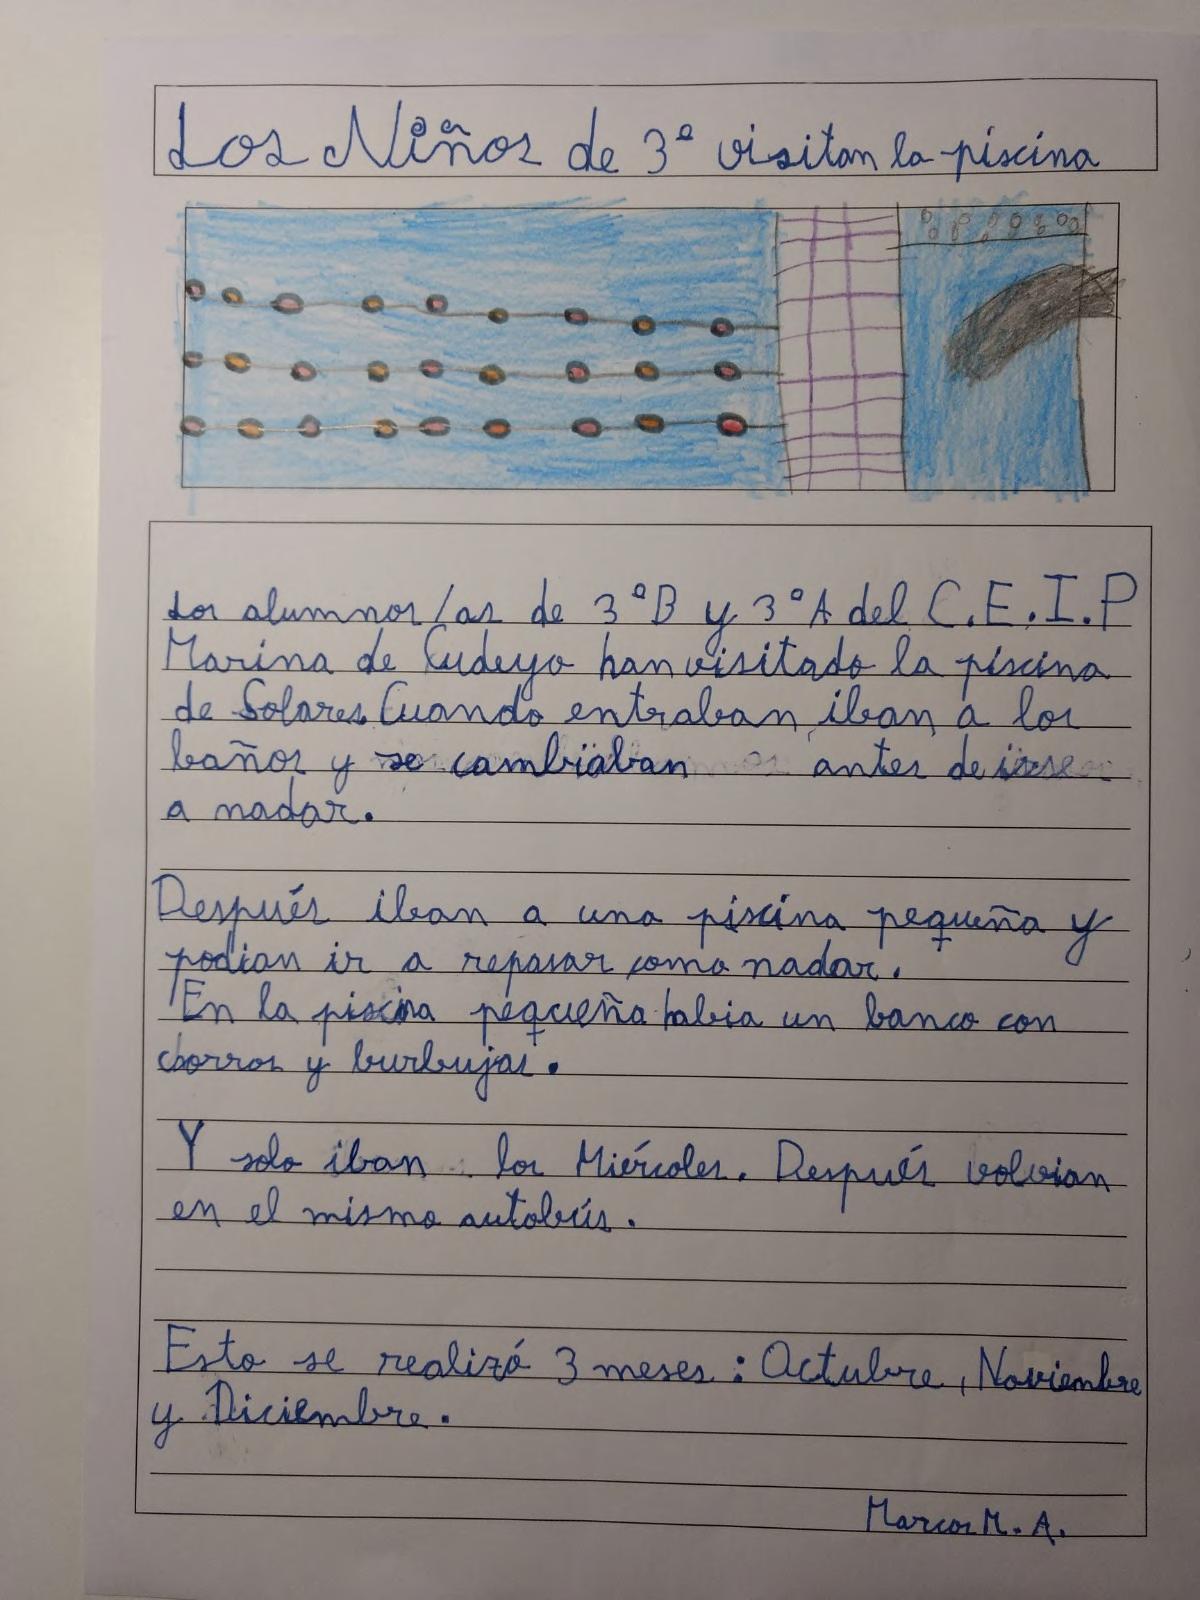 Los Niños de 3º visitan la piscina
Los alumnos/as de 3ºB y 3ºA del C.E.I.P
Marina de Cudeyo han visitado la piscina
de Solares. Cuando entraban iban a los
baños y se cambiaban antes de irse
a nadar.
Después iban a una piscina pequeña y
podian ir a repasar como nadar.
En la piscina pequeña habia un banco con
chorros y burbujas.
Y solo iban los Miércoles. Después volvian
en el mismo autobús.
Esto se realizó 3 meses: Octubre, Noviembre
y Diciembre.
Marcos M. A.